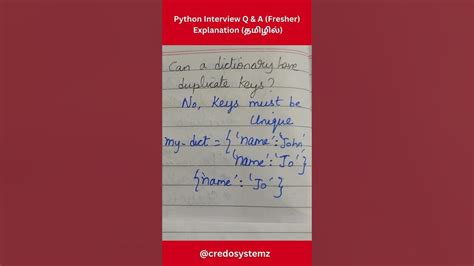 Python Interview Q & A (Fresher)
Explanation (தமிழில்)
Can a dictionary have
duplicate keys?
No, Keys must be
Unique
my_dict = {'name':'John'
'name':'Jo'}
{'name':'Jo'}
@credosystemz